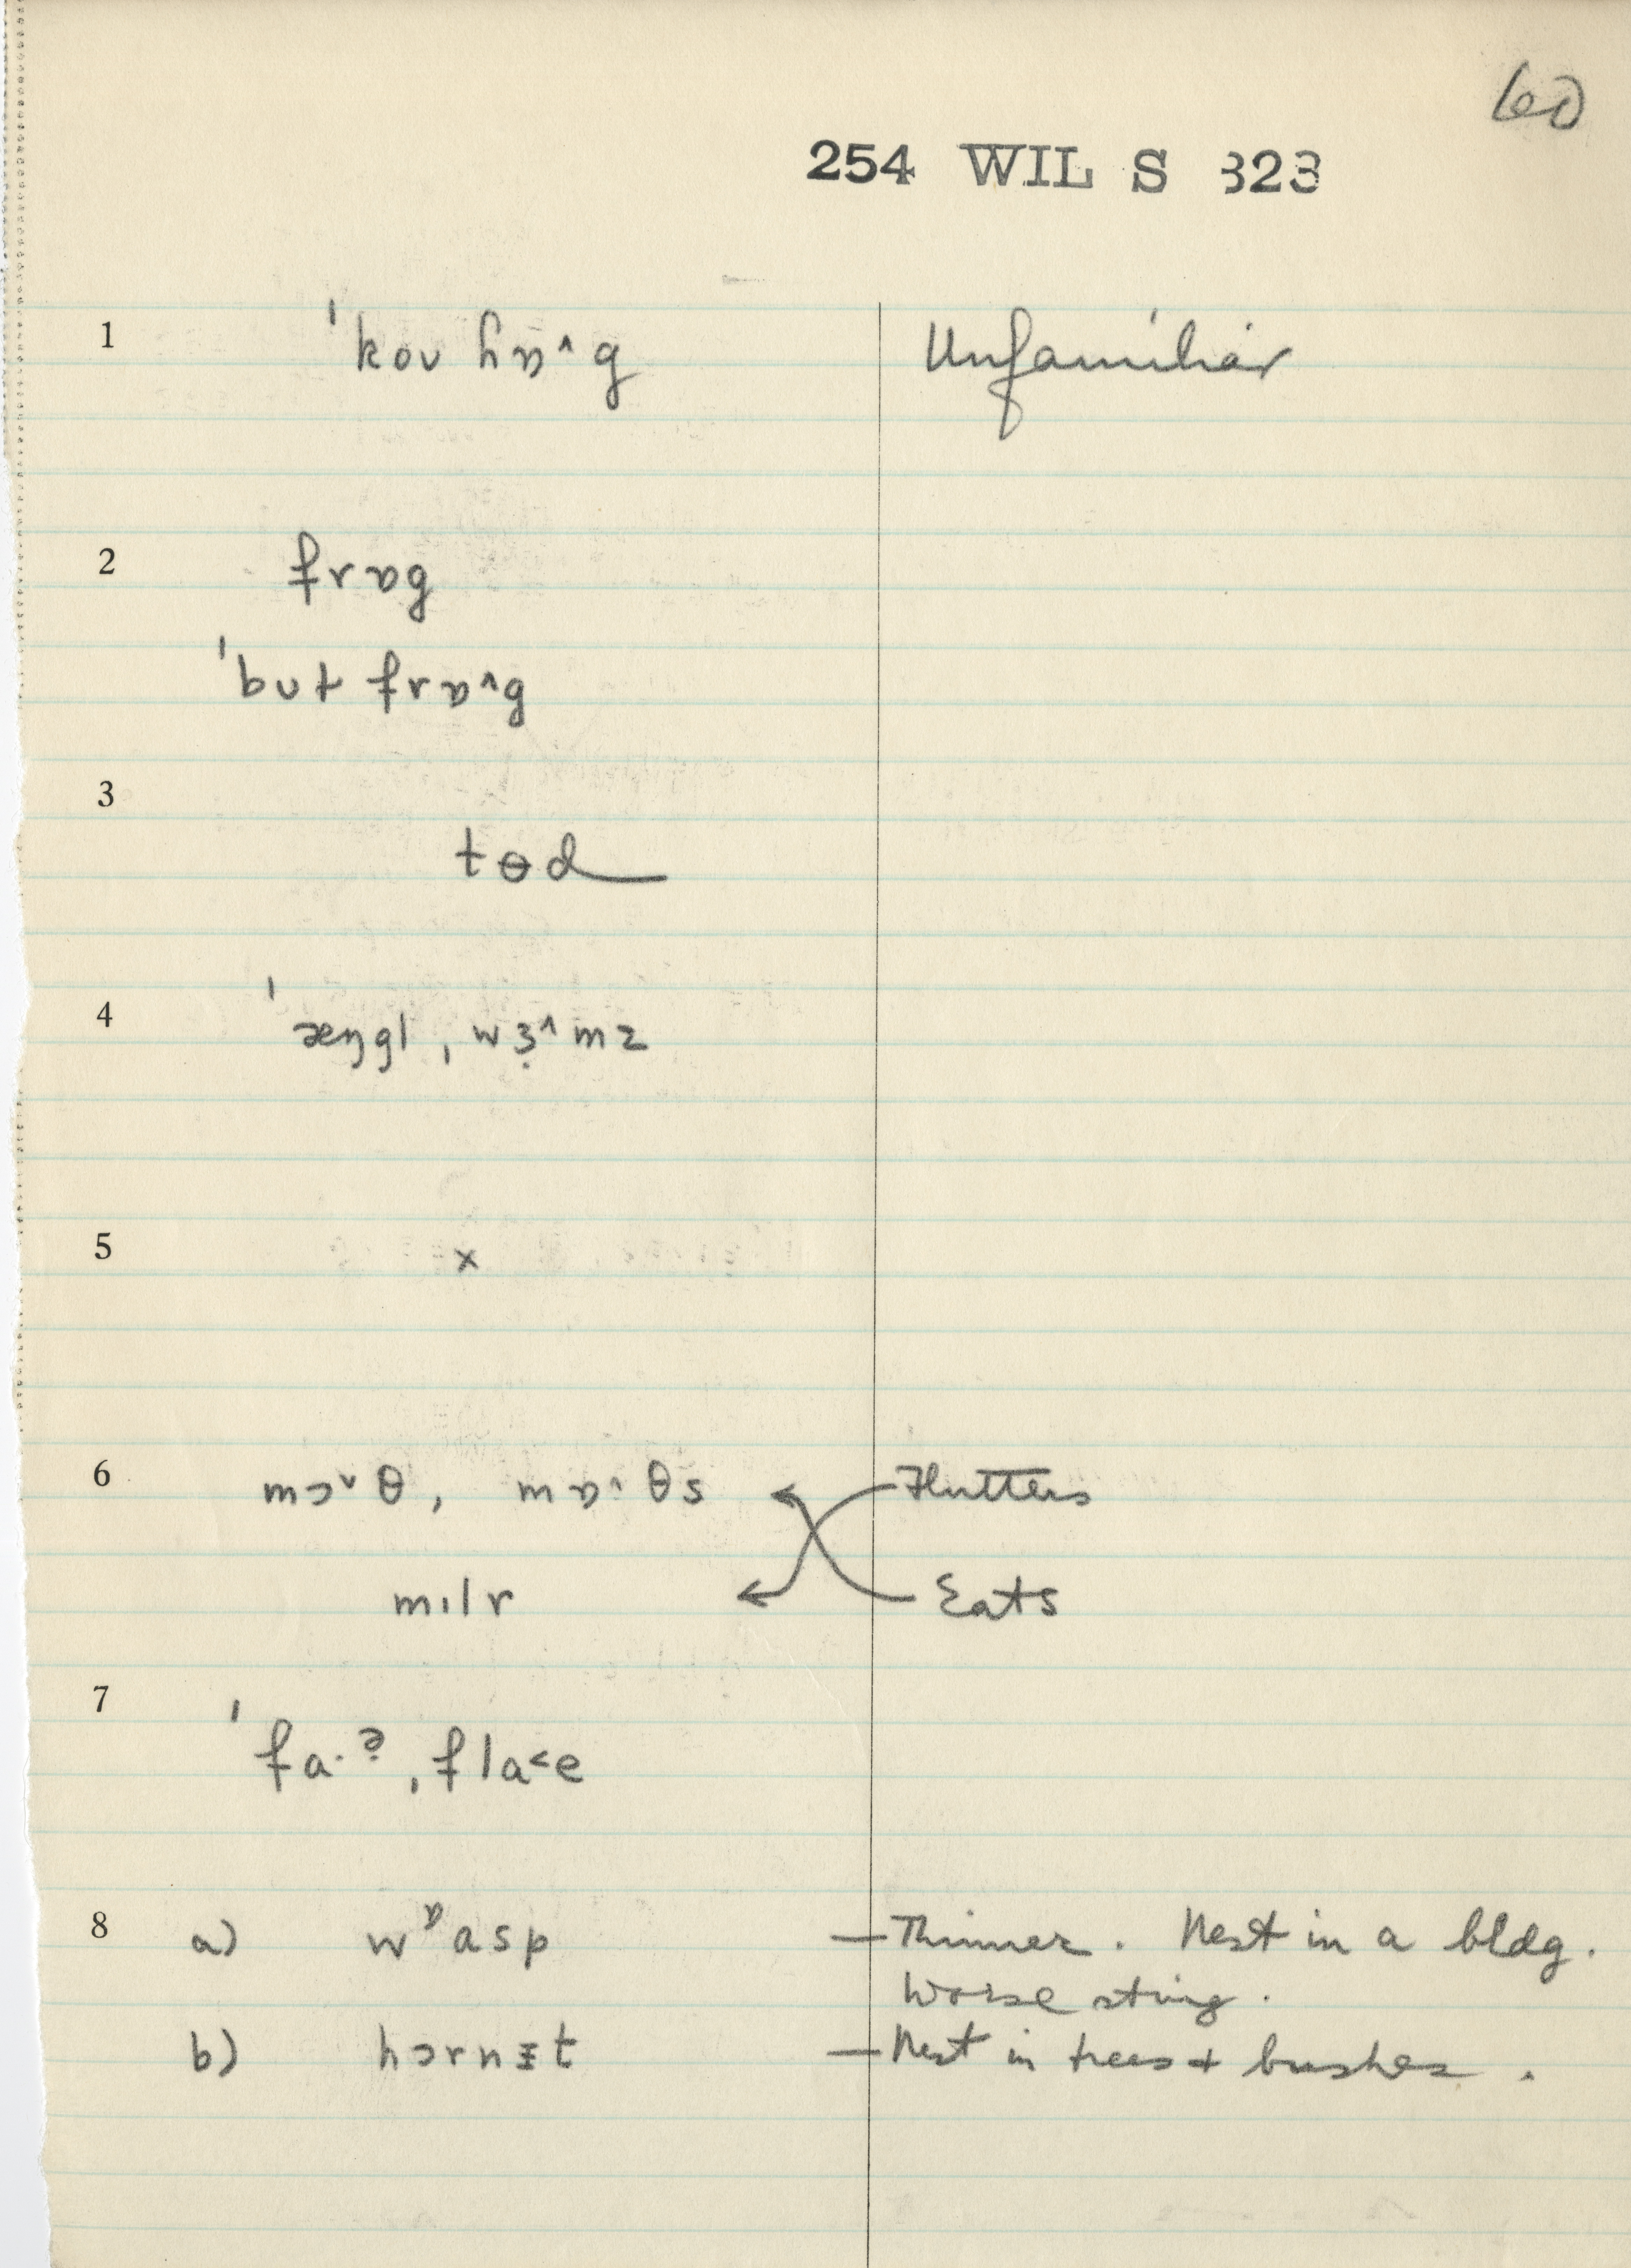 60
254 WIL S 323
1 ˈkoʊ hɒ^g Unfamiliar
2 frɒg
ˈbʊt frɒ^g
3 tɵd
4 ˈæŋgl, wɜ̣^mz
5 x
6 mɔˇθ, mɒ^·θs Flutters
mɪlr Eats
7 ˈfa·ə̣, fla<e
8 a) wᶛasp — Thinner. Nest in a bldg.
Worse sting.
b) hɔrnɨt — Nest in trees + bushes.